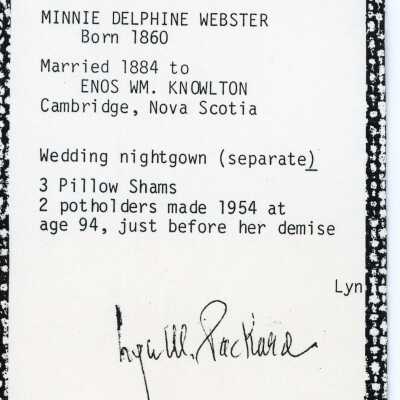 MINNIE DELPHINE WEBSTER
Born 1860
Married 1884 to
ENOS WM. KNOWLTON
Cambridge, Nova Scotia
Wedding nightgown (separate)
3 Pillow Shams
2 potholders made 1954 at
age 94, just before her demise
Lyn
Lyn W. Packard